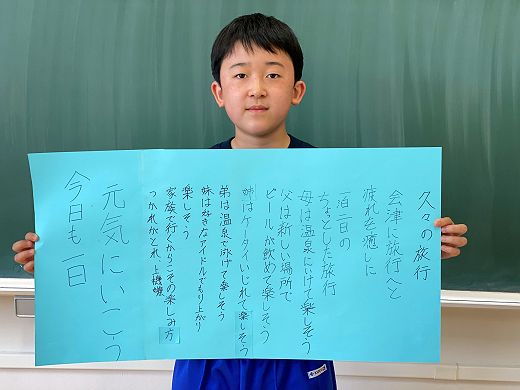 久々の旅行
会津に旅行へと
疲れを癒しに
一泊二日の
ちょっとした旅行
母は温泉にいけて楽しそう
父は新しい場所で
ビールが飲めて楽しそう
姉はケータイいじれて楽しそう
弟は温泉で泳げて楽しそう
妹は好きなアイドルでもり上がり
楽しそう
家族で行くからこその楽しみ方
つかれがとれ、と機嫌
元気にいこう
今日も一日